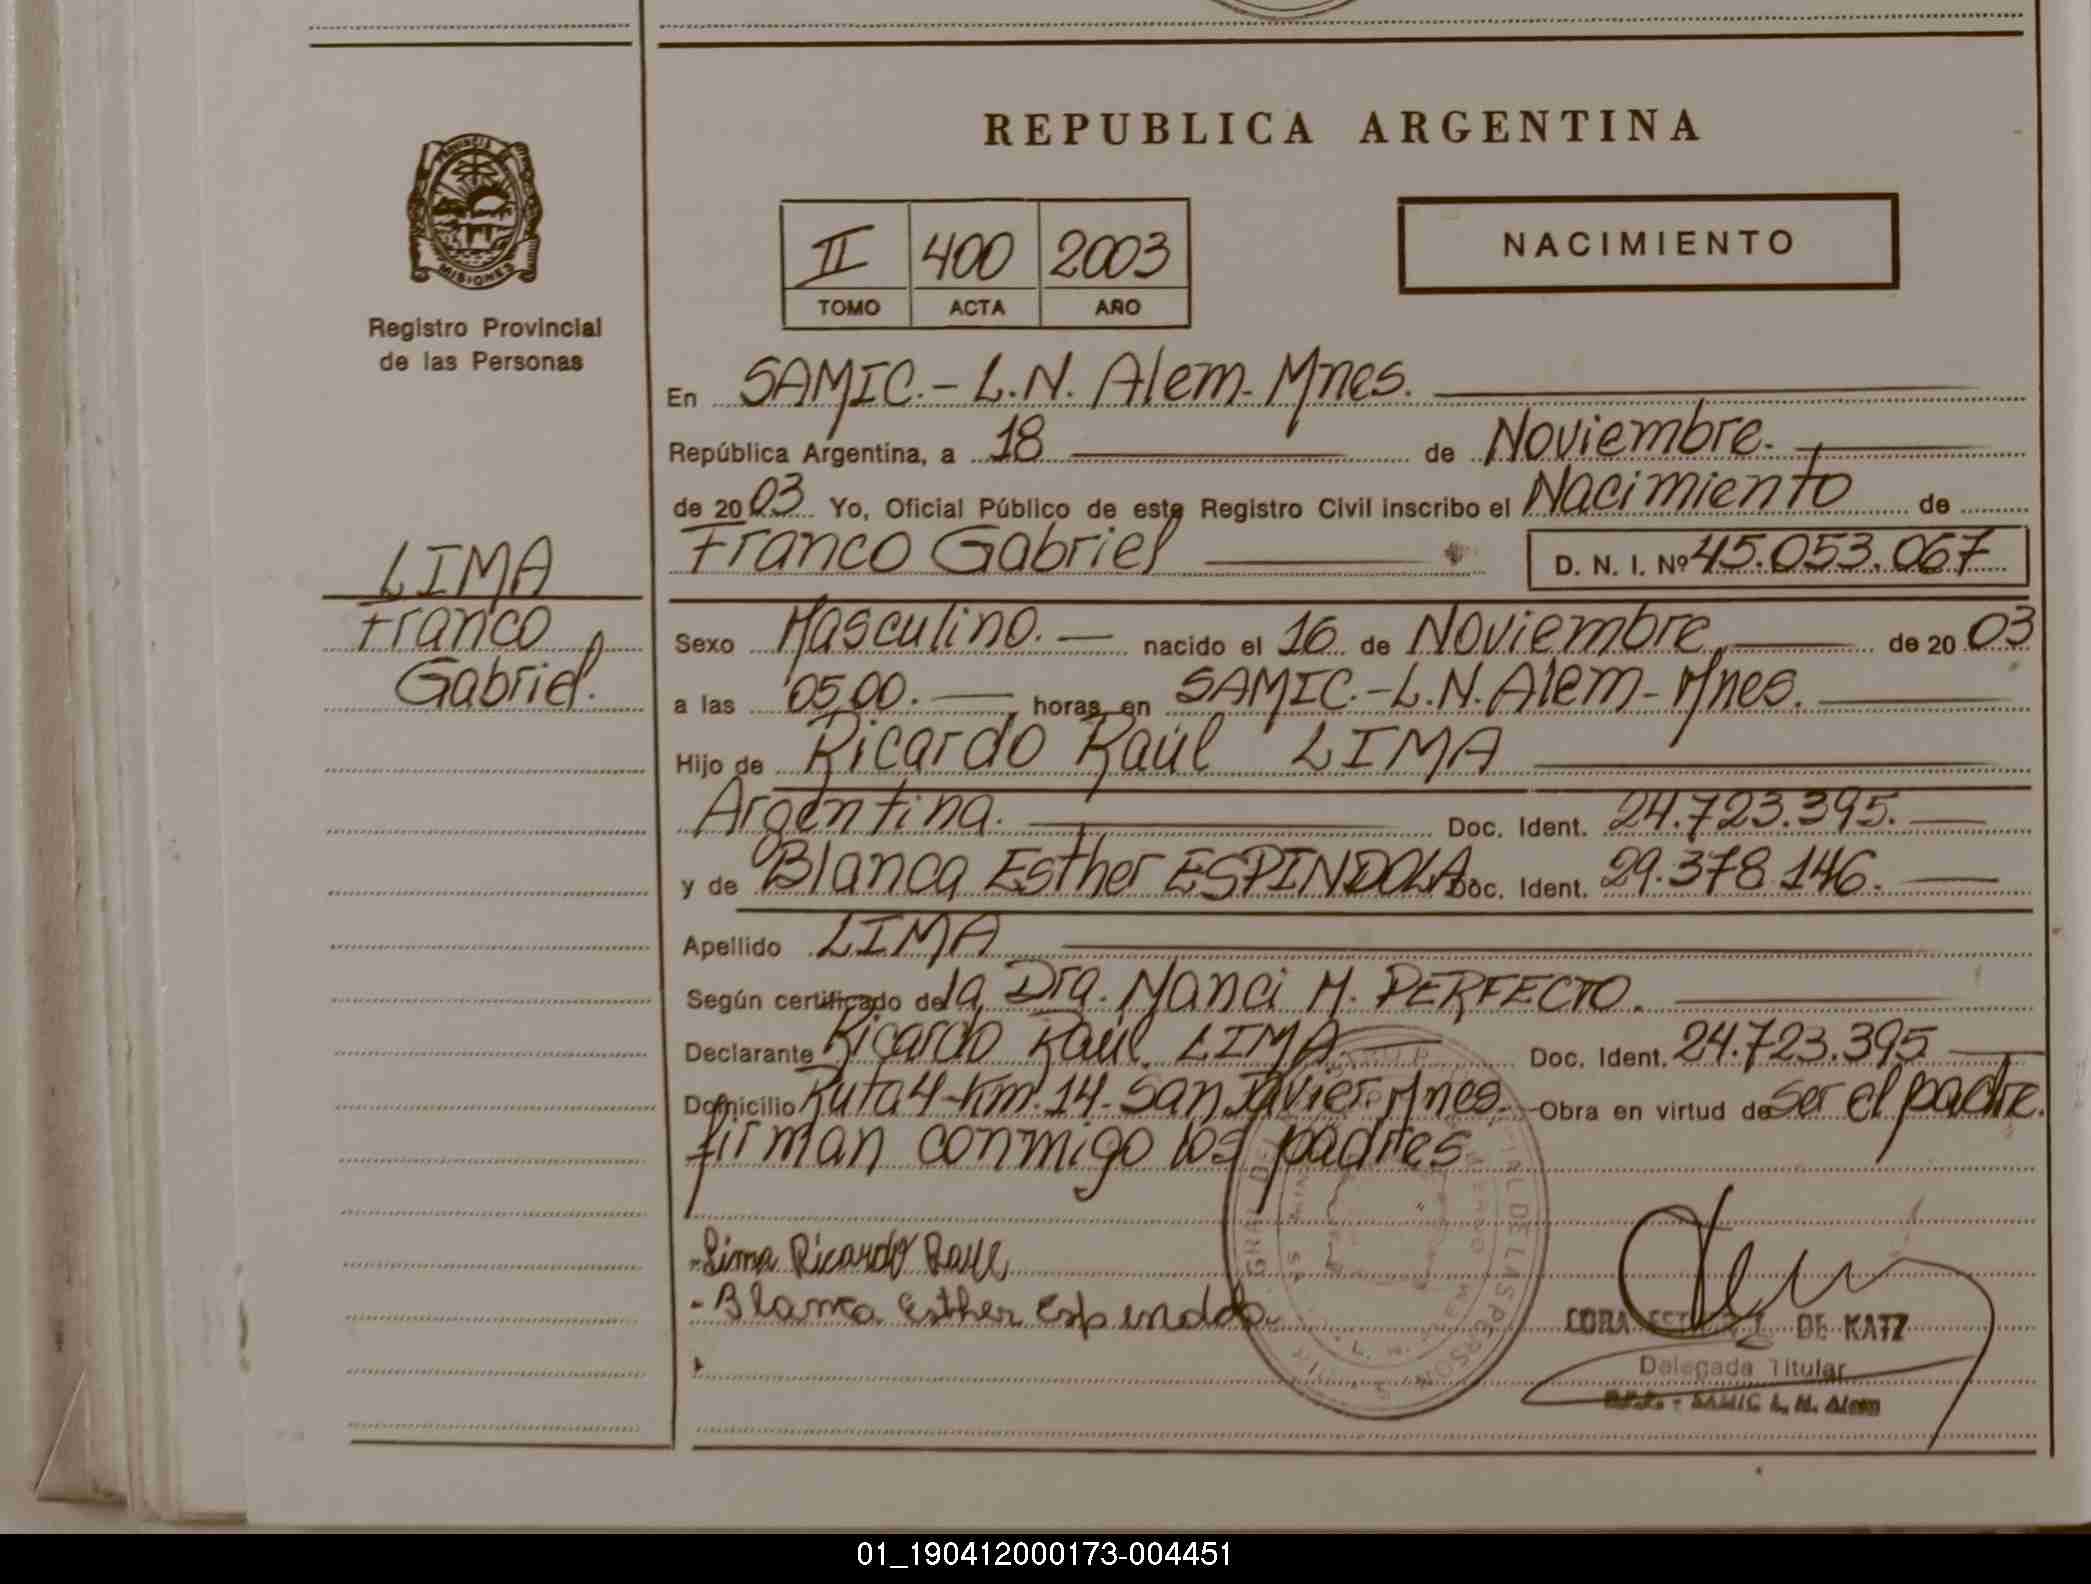 REPUBLICA ARGENTINA
PROVINCIA
MISIONES
Registro Provincial
de las Personas
II 400 2003
TOMO ACTA AÑO
NACIMIENTO
En SAMIC.- L.N. Alem- Mnes.
República Argentina, a 18 de Noviembre.
de 2003 Yo, Oficial Público de este Registro Civil inscribo el Nacimiento de
LIMA
Franco
Gabriel.
Franco Gabriel D. N. I. Nº 45.053.067
Sexo Masculino. nacido el 16 de Noviembre de 2003
a las 05,00. horas en SAMIC.-L.N. Alem- Mnes.
Hijo de Ricardo Raúl LIMA
Argentina. Doc. Ident. 24.723.395.
y de Blanca Esther ESPINDOLA Doc. Ident. 29.378.146.
Apellido LIMA
Según certificado de la Dra. Nanci M. PERFECTO.
Declarante Ricardo Raúl LIMA Doc. Ident. 24.723.395
Domicilio Ruta 4-Km. 14- San Javier. Mnes. Obra en virtud de ser el padre.
firman conmigo los padres
-Lima Ricardo Raul
- Blanca Esther Espindola-
DE KATZ
Delegada Titular
SAMIC L. N. Alem
01_190412000173-004451